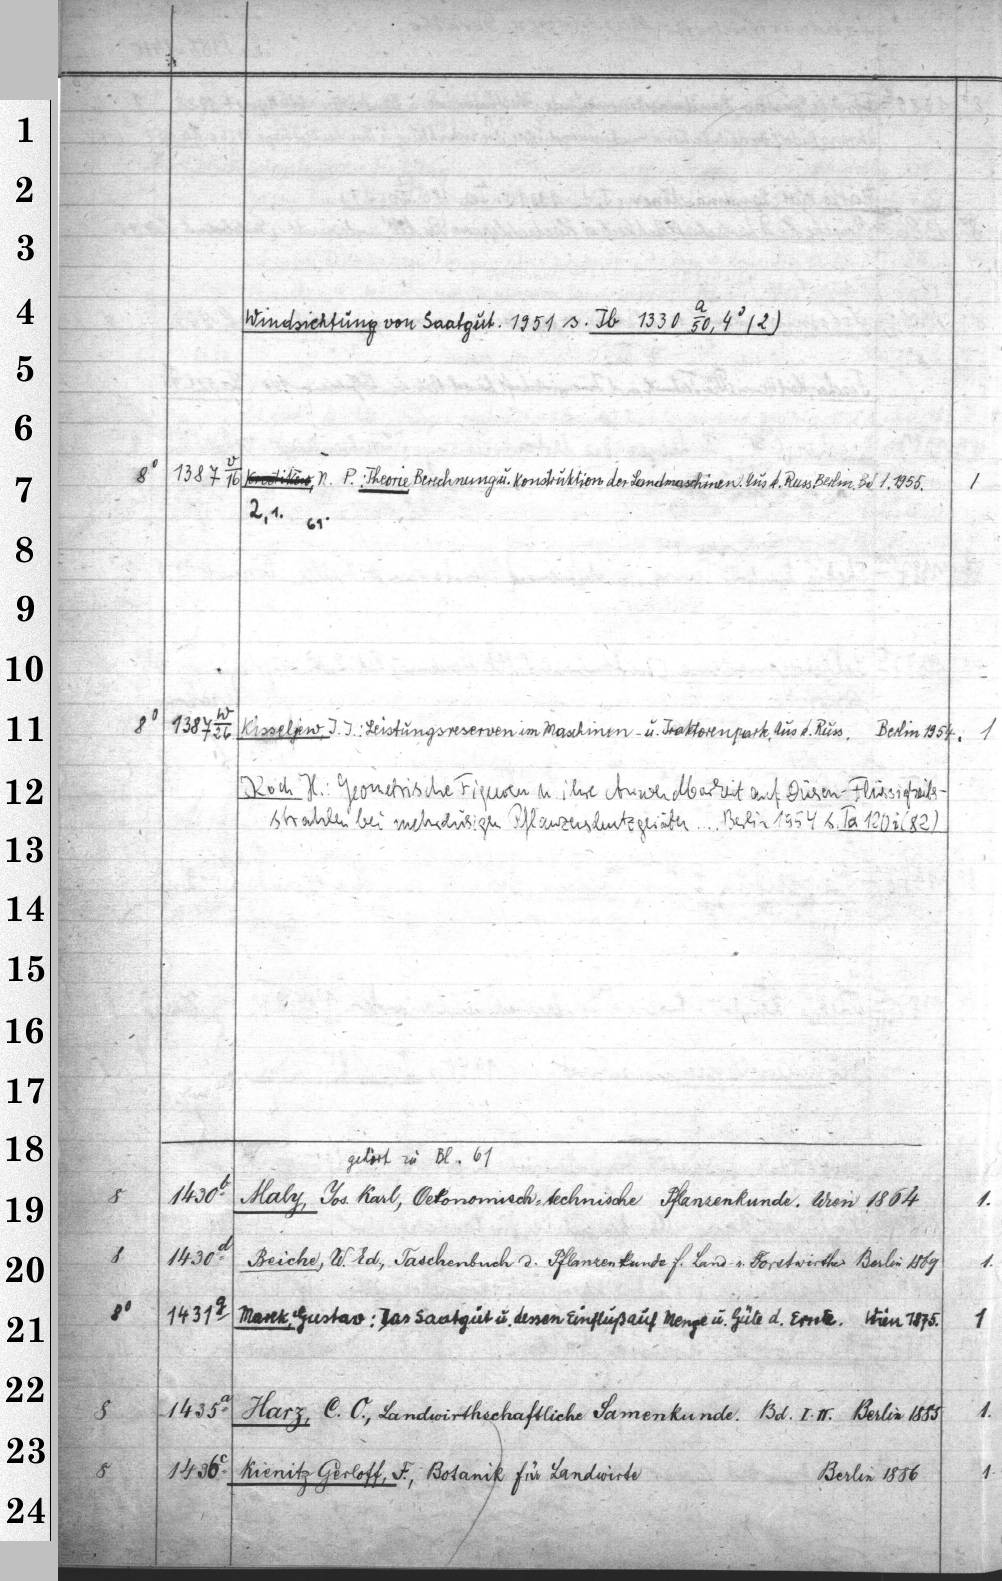 1
2
3
4 Windsichtung von Saatgut. 1951 s. Ib 1330 a/50, 4° (2)
5
6
7 8° 1387 v/16 N. P.: Theorie Berechnung u. Konstruktion der Landmaschinen. Aus d. Russ. Berlin. Bd 1. 1955. 1
2,1. 61.
8
9
10
11 8° 1387 w/26 Kisseljew, J. J.: Leistungsreserven im Maschinen- u. Traktorenpark. Aus d. Russ. Berlin 1954. 1
12 Koch H.: Geometrische Figuren u ihre Anwendbarkeit auf Düsen-Flüssigkeits-
strahlen bei mehrdüsigen Pflanzenschutzgeräten .... Berlin 1954 s. Ta 120i(82)
13
14
15
16
17
18
gehört zu Bl. 61
19 8 1430b Maly, Jos. Karl, Oekonomisch-technische Pflanzenkunde. Wien 1864 1.
20 8 1430d Reiche, W. Ed, Taschenbuch d. Pflanzenkunde f. Land- u. Forstwirthe Berlin 1869 1.
21 8° 1431g Marek, Gustav: Das Saatgut u. dessen Einfluß auf Menge u. Güte d. Ernte. Wien 1875. 1
22
8 1435a Harz, C. O., Landwirthschaftliche Samenkunde. Bd. I. II. Berlin 1885 1.
23 8 1436c Kienitz Gerloff, F., Botanik für Landwirte Berlin 1886 1
24